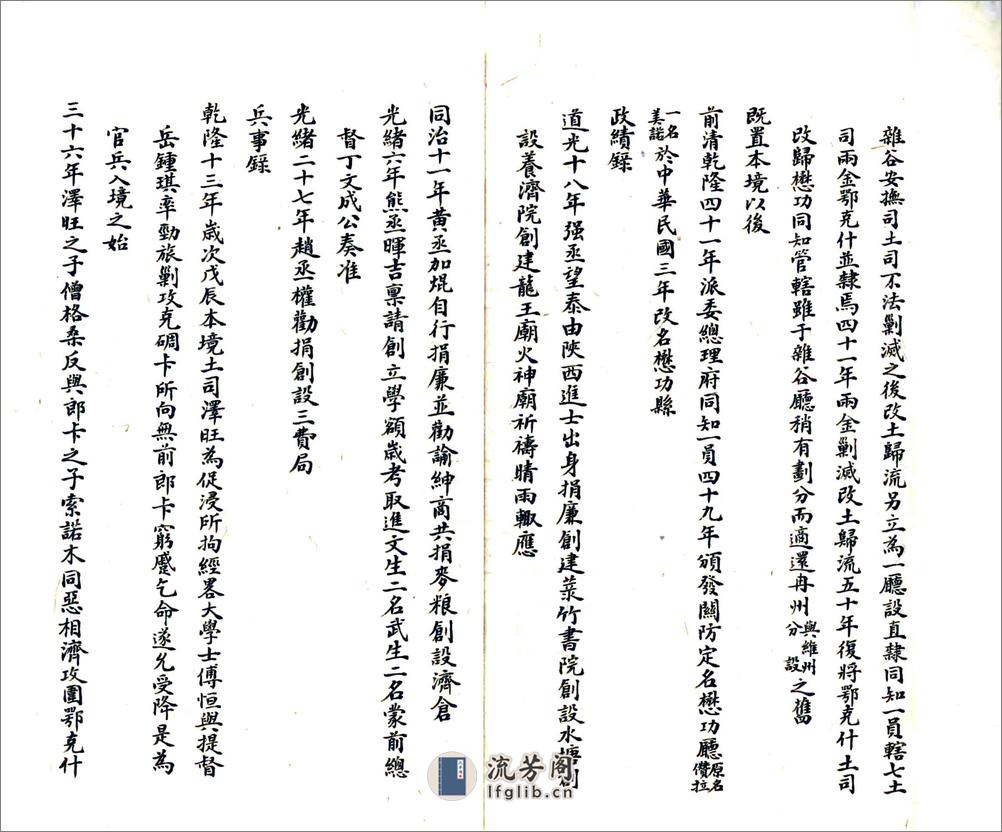 雜谷安撫司土司不法剿滅之後改土歸流另立為一廳設直隸同知一員轄七土
司兩金鄂克什並隸焉四十一年兩金剿滅改土歸流五十年復將鄂克什土司
改歸懋功同知管轄雖于雜谷廳稍有劃分而適還冉州與維州分設之舊
既置本境以後
前清乾隆四十一年派委總理府同知一員四十九年頒發關防定名懋功廳原名儧拉
一名美諾於中華民國三年改名懋功縣
政績錄
道光十八年强丞望泰由陝西進士出身捐廉創建菉竹書院創設水塘創
設養濟院創建龍王廟火神廟祈禱晴雨輒應
同治十一年黃丞加焜自行捐廉並勸諭紳商共捐麥粮創設濟倉
光緒六年熊丞暉吉稟請創立學額歲考取進文生二名武生二名蒙前總
督丁文成公奏准
光緒二十七年趙丞權勸捐創設三費局
兵事錄
乾隆十三年歲次戊辰本境土司澤旺為促浸所拘經畧大學士傅恒與提督
岳鍾琪率勁旅剿攻克碉卡所向無前郎卡窮蹙乞命遂允受降是為
官兵入境之始
三十六年澤旺之子僧格桑反與郎卡之子索諾木同惡相濟攻圍鄂克什
流芳阁
lfglib.cn